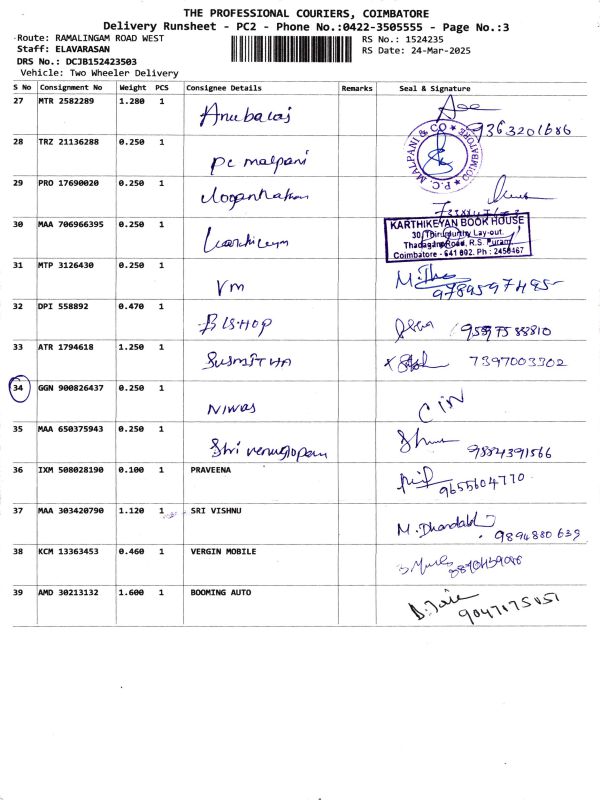 THE PROFESSIONAL COURIERS, COIMBATORE
Delivery Runsheet - PC2 - Phone No.:0422-3505555 - Page No.:3
Route: RAMALINGAM ROAD WEST RS No.: 1524235
Staff: ELAVARASAN RS Date: 24-Mar-2025
DRS No.: DCJB152423503
Vehicle: Two Wheeler Delivery
S No Consignment No Weight PCS Consignee Details Remarks Seal & Signature
27 MTR 2582289 1.280 1 Anubalaj 9363201686
28 TRZ 21136288 0.250 1 PC malpani P.C. MALPANI & CO COIMBATORE
29 PRO 17690020 0.250 1
30 MAA 706966395 0.250 1 KARTHIKEYAN BOOK HOUSE
30, Lay-out.
Road, R.S. Puram
Coimbatore - 641 002. Ph : 2456467
31 MTP 3126430 0.250 1 Vm
32 DPI 558892 0.470 1 BISHOP
33 ATR 1794618 1.250 1 SUSMITHA 7397003302
34 GGN 900826437 0.250 1 NIWAS
35 MAA 650375943 0.250 1 Shri venugopam 9884391566
36 IXM 508028190 0.100 1 PRAVEENA 9655604770
37 MAA 303420790 1.120 1 SRI VISHNU 9894880639
38 KCM 13363453 0.460 1 VERGIN MOBILE
39 AMD 30213132 1.600 1 BOOMING AUTO